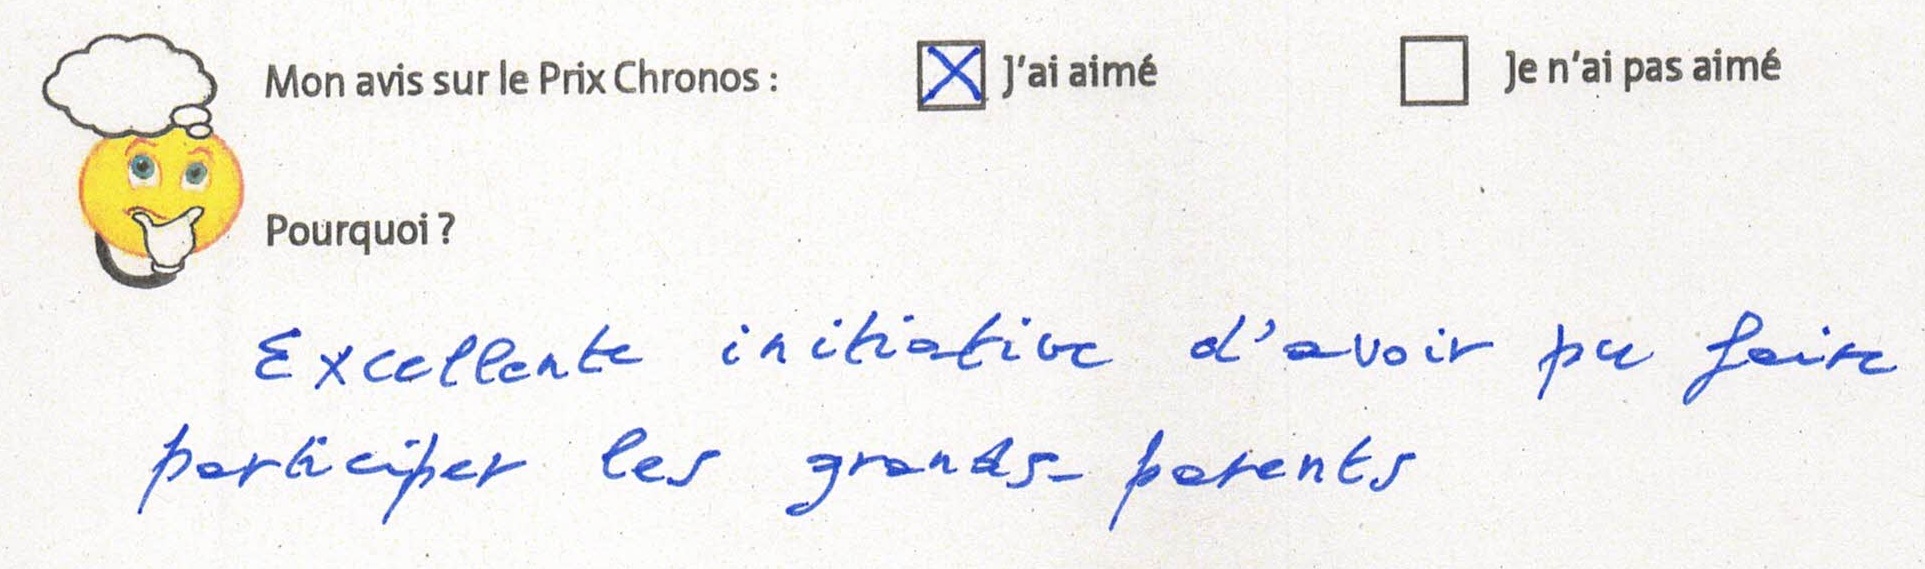 Mon avis sur le Prix Chronos : J'ai aimé Je n'ai pas aimé
Pourquoi ?
Excellente initiative d'avoir pu faire
participer les grands-parents